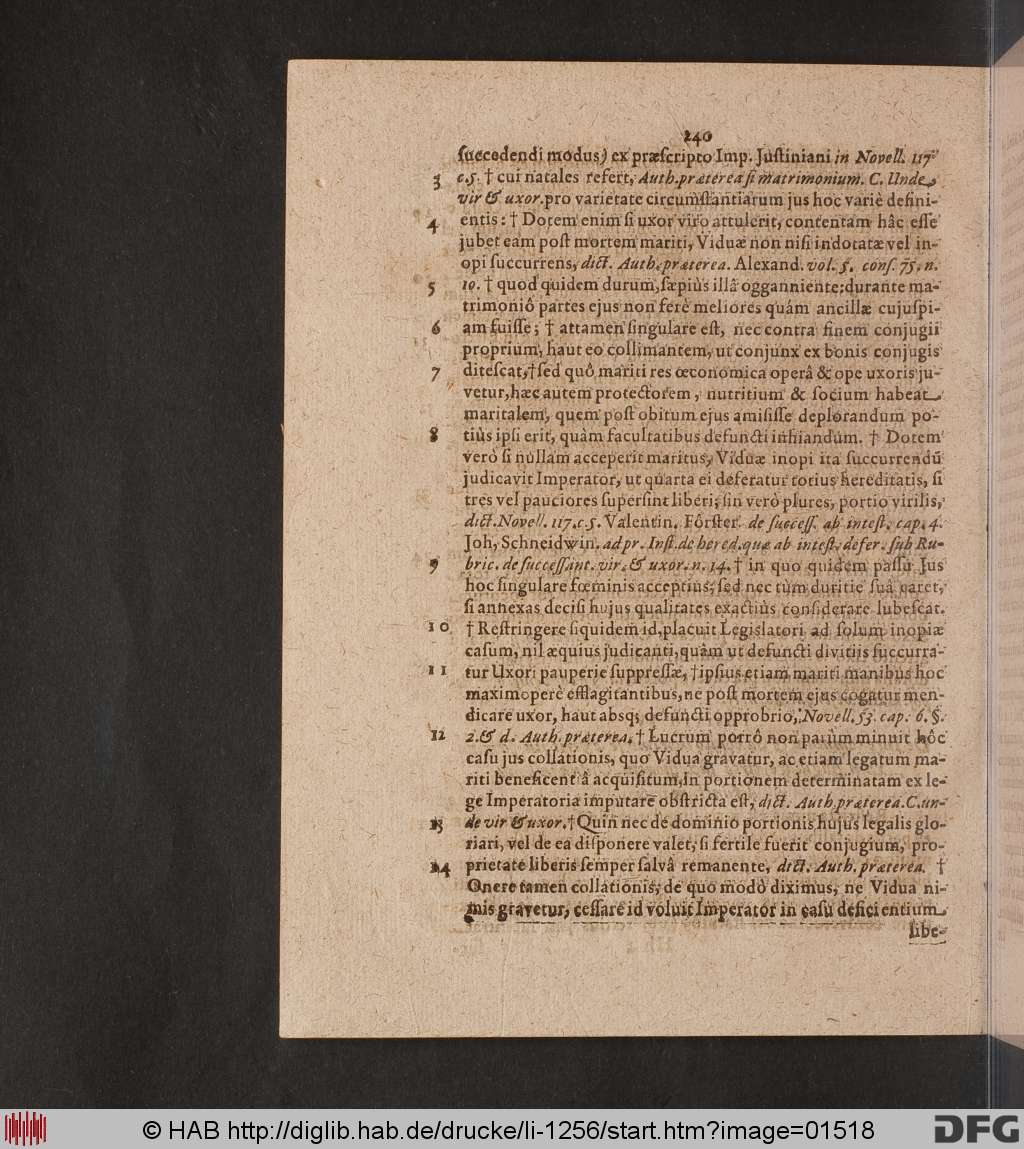 240
succedendi modus) ex præscripto Imp. Justiniani in Novell. 117
3 c.5. † cui natales refert, Auth. præterea si matrimonium. C. Unde
vir & uxor. pro varietate circumstantiarum jus hoc variè defini-
4 entis: † Dotem enim si uxor viro attulerit, contentam hâc esse
jubet eam post mortem mariti, Viduæ non nisi indotatæ vel in-
opi succurrens, dict. Auth. præterea. Alexand. vol. 5. cons. 75. n.
5 10. † quod quidem durum, sæpiùs illâ ogganniente; durante ma-
trimoniô partes ejus non ferè meliores quám ancillæ cujuspi-
6 am fuisse; † attamen singulare est, nec contra finem conjugii
proprium, haut eo collimantem, ut conjunx ex bonis conjugis
7 ditescat, † sed quô mariti res œconomica operâ & ope uxoris ju-
vetur, hæc autem protectorem, nutritium & socium habeat
maritalem, quem post obitum ejus amisisse deplorandum po-
8 tiùs ipsi erit, quàm facultatibus defuncti inhiandum. † Dotem
verò si nullam acceperit maritus, Viduæ inopi ita succurrendū
judicavit Imperator, ut quarta ei deferatur totius hereditatis, si
tres vel pauciores supersint liberi; sin verò plures, portio virilis,
dict. Novell. 117. c.5. Valentin. Förster. de success. ab intest. cap. 4.
Joh, Schneidwin. ad pr. Inst. de hered. quæ ab intest. defer. sub Ru-
9 bric. de successant. vir. & uxor. n. 14. † in quo quidem passu Jus
hoc singulare fœminis acceptius; sed nec tùm duritie suâ caret,
si annexas decisi hujus qualitates exactiùs considerare lubescat.
10 † Restringere siquidem id, placuit Legislatori ad solum inopiæ
casum, nil æquius judicanti, quàm ut defuncti divitiis succurra-
11 tur Uxori pauperie suppressæ, † ipsius etiam mariti manibus hoc
maximoperè efflagitantibus, ne post mortem ejus cogatur men-
dicare uxor, haut absq; defuncti opprobrio, Novell. 53. cap. 6. §.
12 2. & d. Auth. præterea. † Lucrum porrô non parùm minuit hôc
casu jus collationis, quo Vidua gravatur, ac etiam legatum ma-
riti beneficentiâ acquisitum, in portionem determinatam ex le-
ge Imperatoria imputare obstricta est, dict. Auth. præterea. C. un-
13 de vir & uxor. † Quin nec de dominio portionis hujus legalis glo-
riari, vel de ea disponere valet, si fertile fuerit conjugium, pro-
14 prietate liberis semper salvâ remanente, dict. Auth. præterea. †
Onere tamen collationis, de quo modò diximus, ne Vidua ni-
mis gravetur, cessare id voluit Imperator in casu deficientium
libe-
© HAB http://diglib.hab.de/drucke/li-1256/start.htm?image=01518
DFG